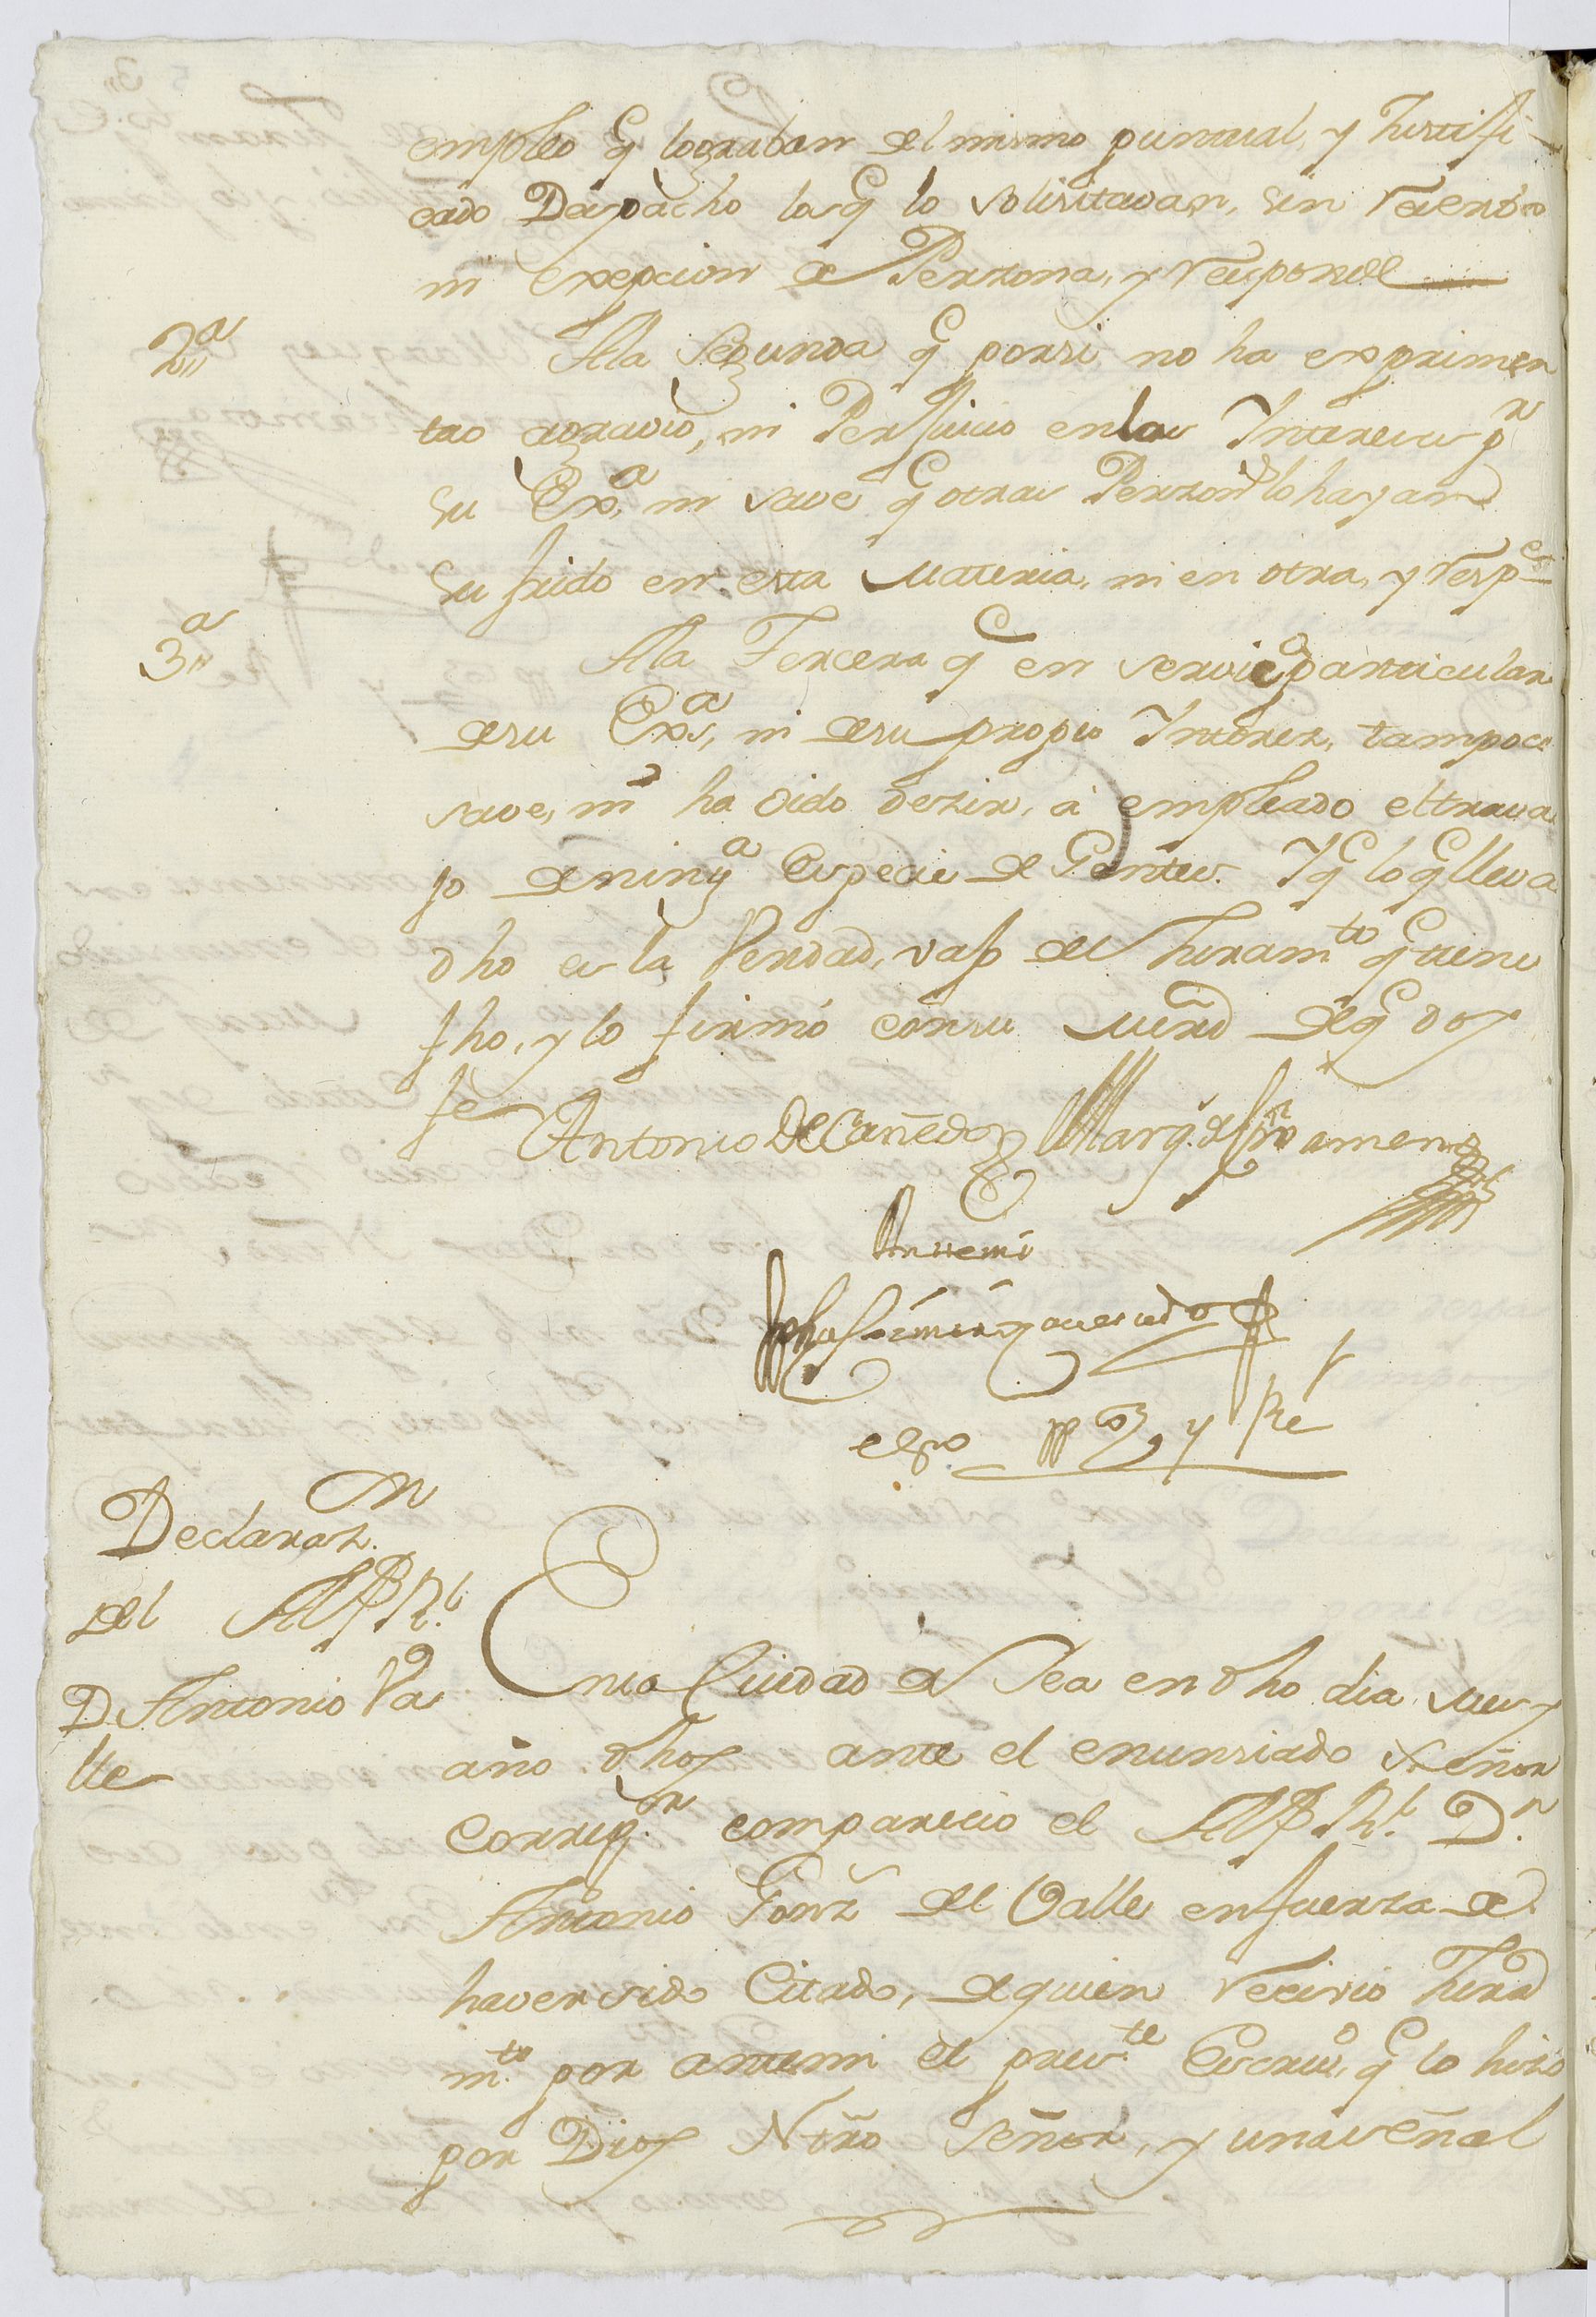 empleo q̃ lograban del mismo puntual, y Justifi-
cado Despacho los q̃ lo solisitavan, sin reserva
ni exepcion de Perzona, y responde
2,,ª
Ala Segunda q̃ porsi no ha exprimen
tao agravio, ni Perjuicio enlos Intereses pr
su Exª, ni save q̃ otras Perzonas lo hayan
sufrido en esta materia, ni en otra, y respe
3,,ª
Ala Tercera q̃ en servicio particular
desu Exª, ni desu propio Interez, tampoco
save, ni ha oido dezir, à empleado eltrava
jo de ningª especie de Gentes. Yq̃ lo q̃ lleva
dho es la Verdad, vajo del Juramto q̃ tiene
fho, y lo firmó consu mrd deq̃ doy
fe
Antonio De Cañedo
Antemi
esno ppco y Rl
Declarazn
del Alfz Rl
D Antonio Va
lle
Enla Ciudad de en dho dia mes y
año dhos ante el enunsiado Señor
Corregr comparecio el Alfz Rl Dn
Antonio Gonz del Valle enfuerza de
haversido Citado, dequien recivio Jura
mto por antemi el preste Escrivo, q̃ lo hizo
por Dios Ntro Señor, y unaseñal